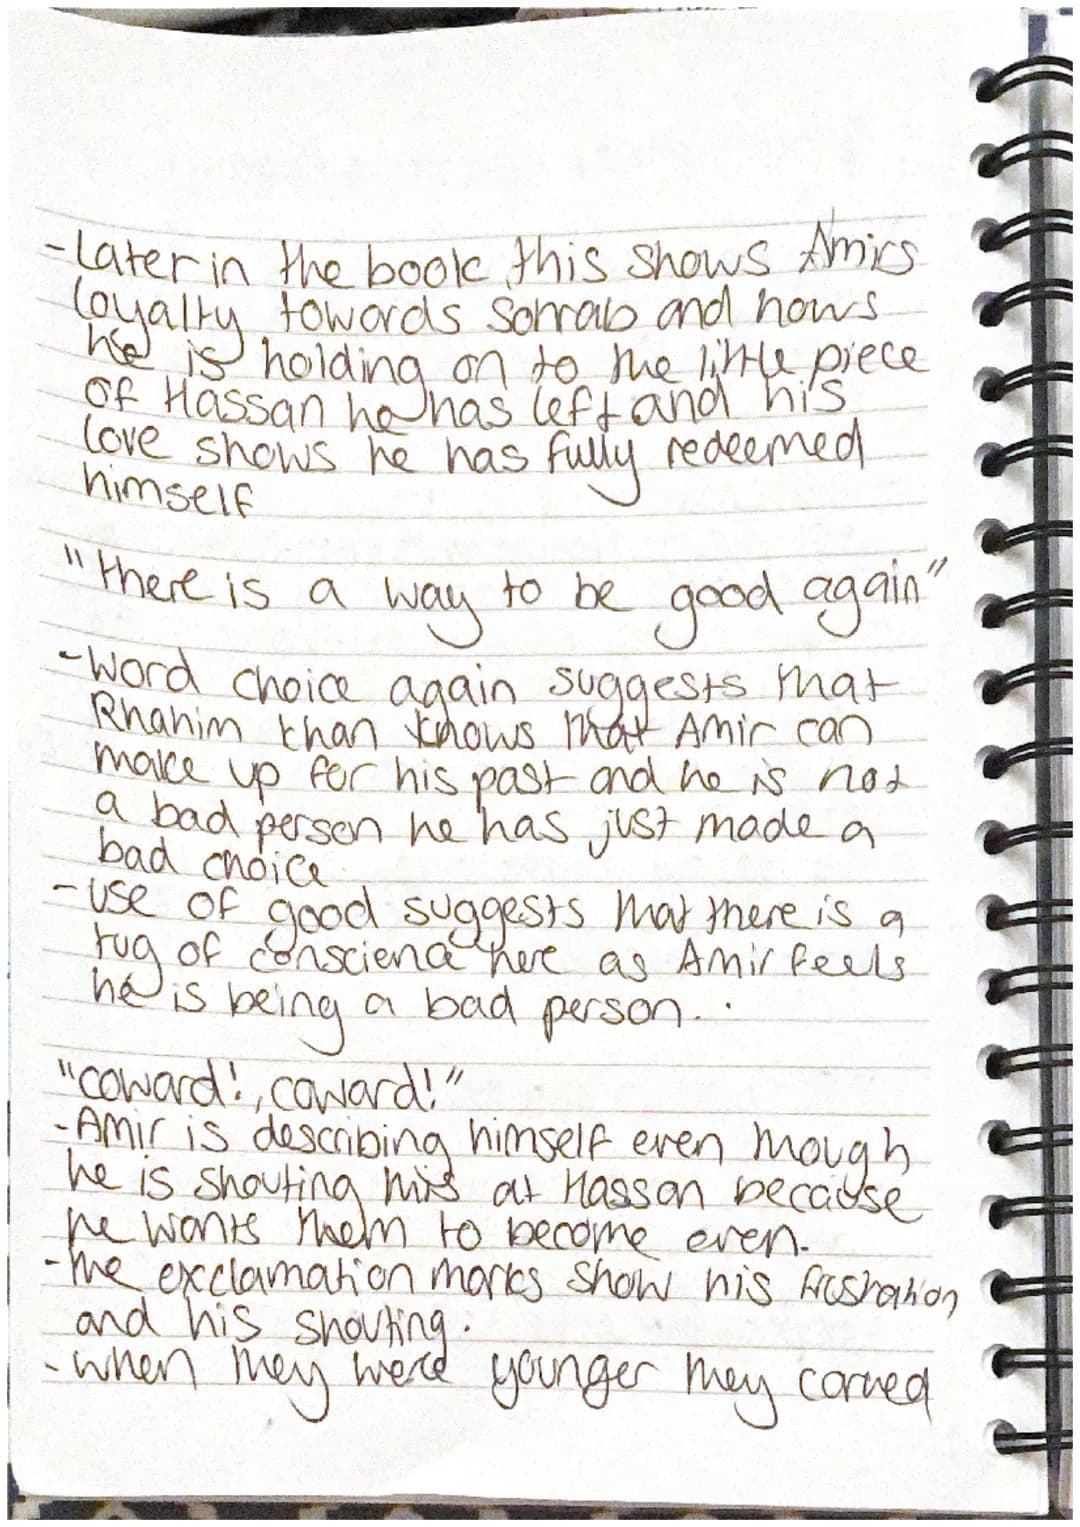 - Later in the book this shows Amirs
loyalty towards Sohrab and hows
he is holding on to the little piece
of Hassan he has left and his
love shows he has fully redeemed
himself
"there is a way to be good again"
- Word choice again suggests that
Rhahim khan knows that Amir can
make up for his past and he is not
a bad person he has just made a
bad choice
- use of good suggests that there is a
tug of conscience here as Amir feels
he is being a bad person.
"coward!, coward!"
- Amir is describing himself even though
he is shouting this at Hassan because
he wants them to become even.
- the exclamation marks show his frustration
and his shouting.
- when they were younger they carved